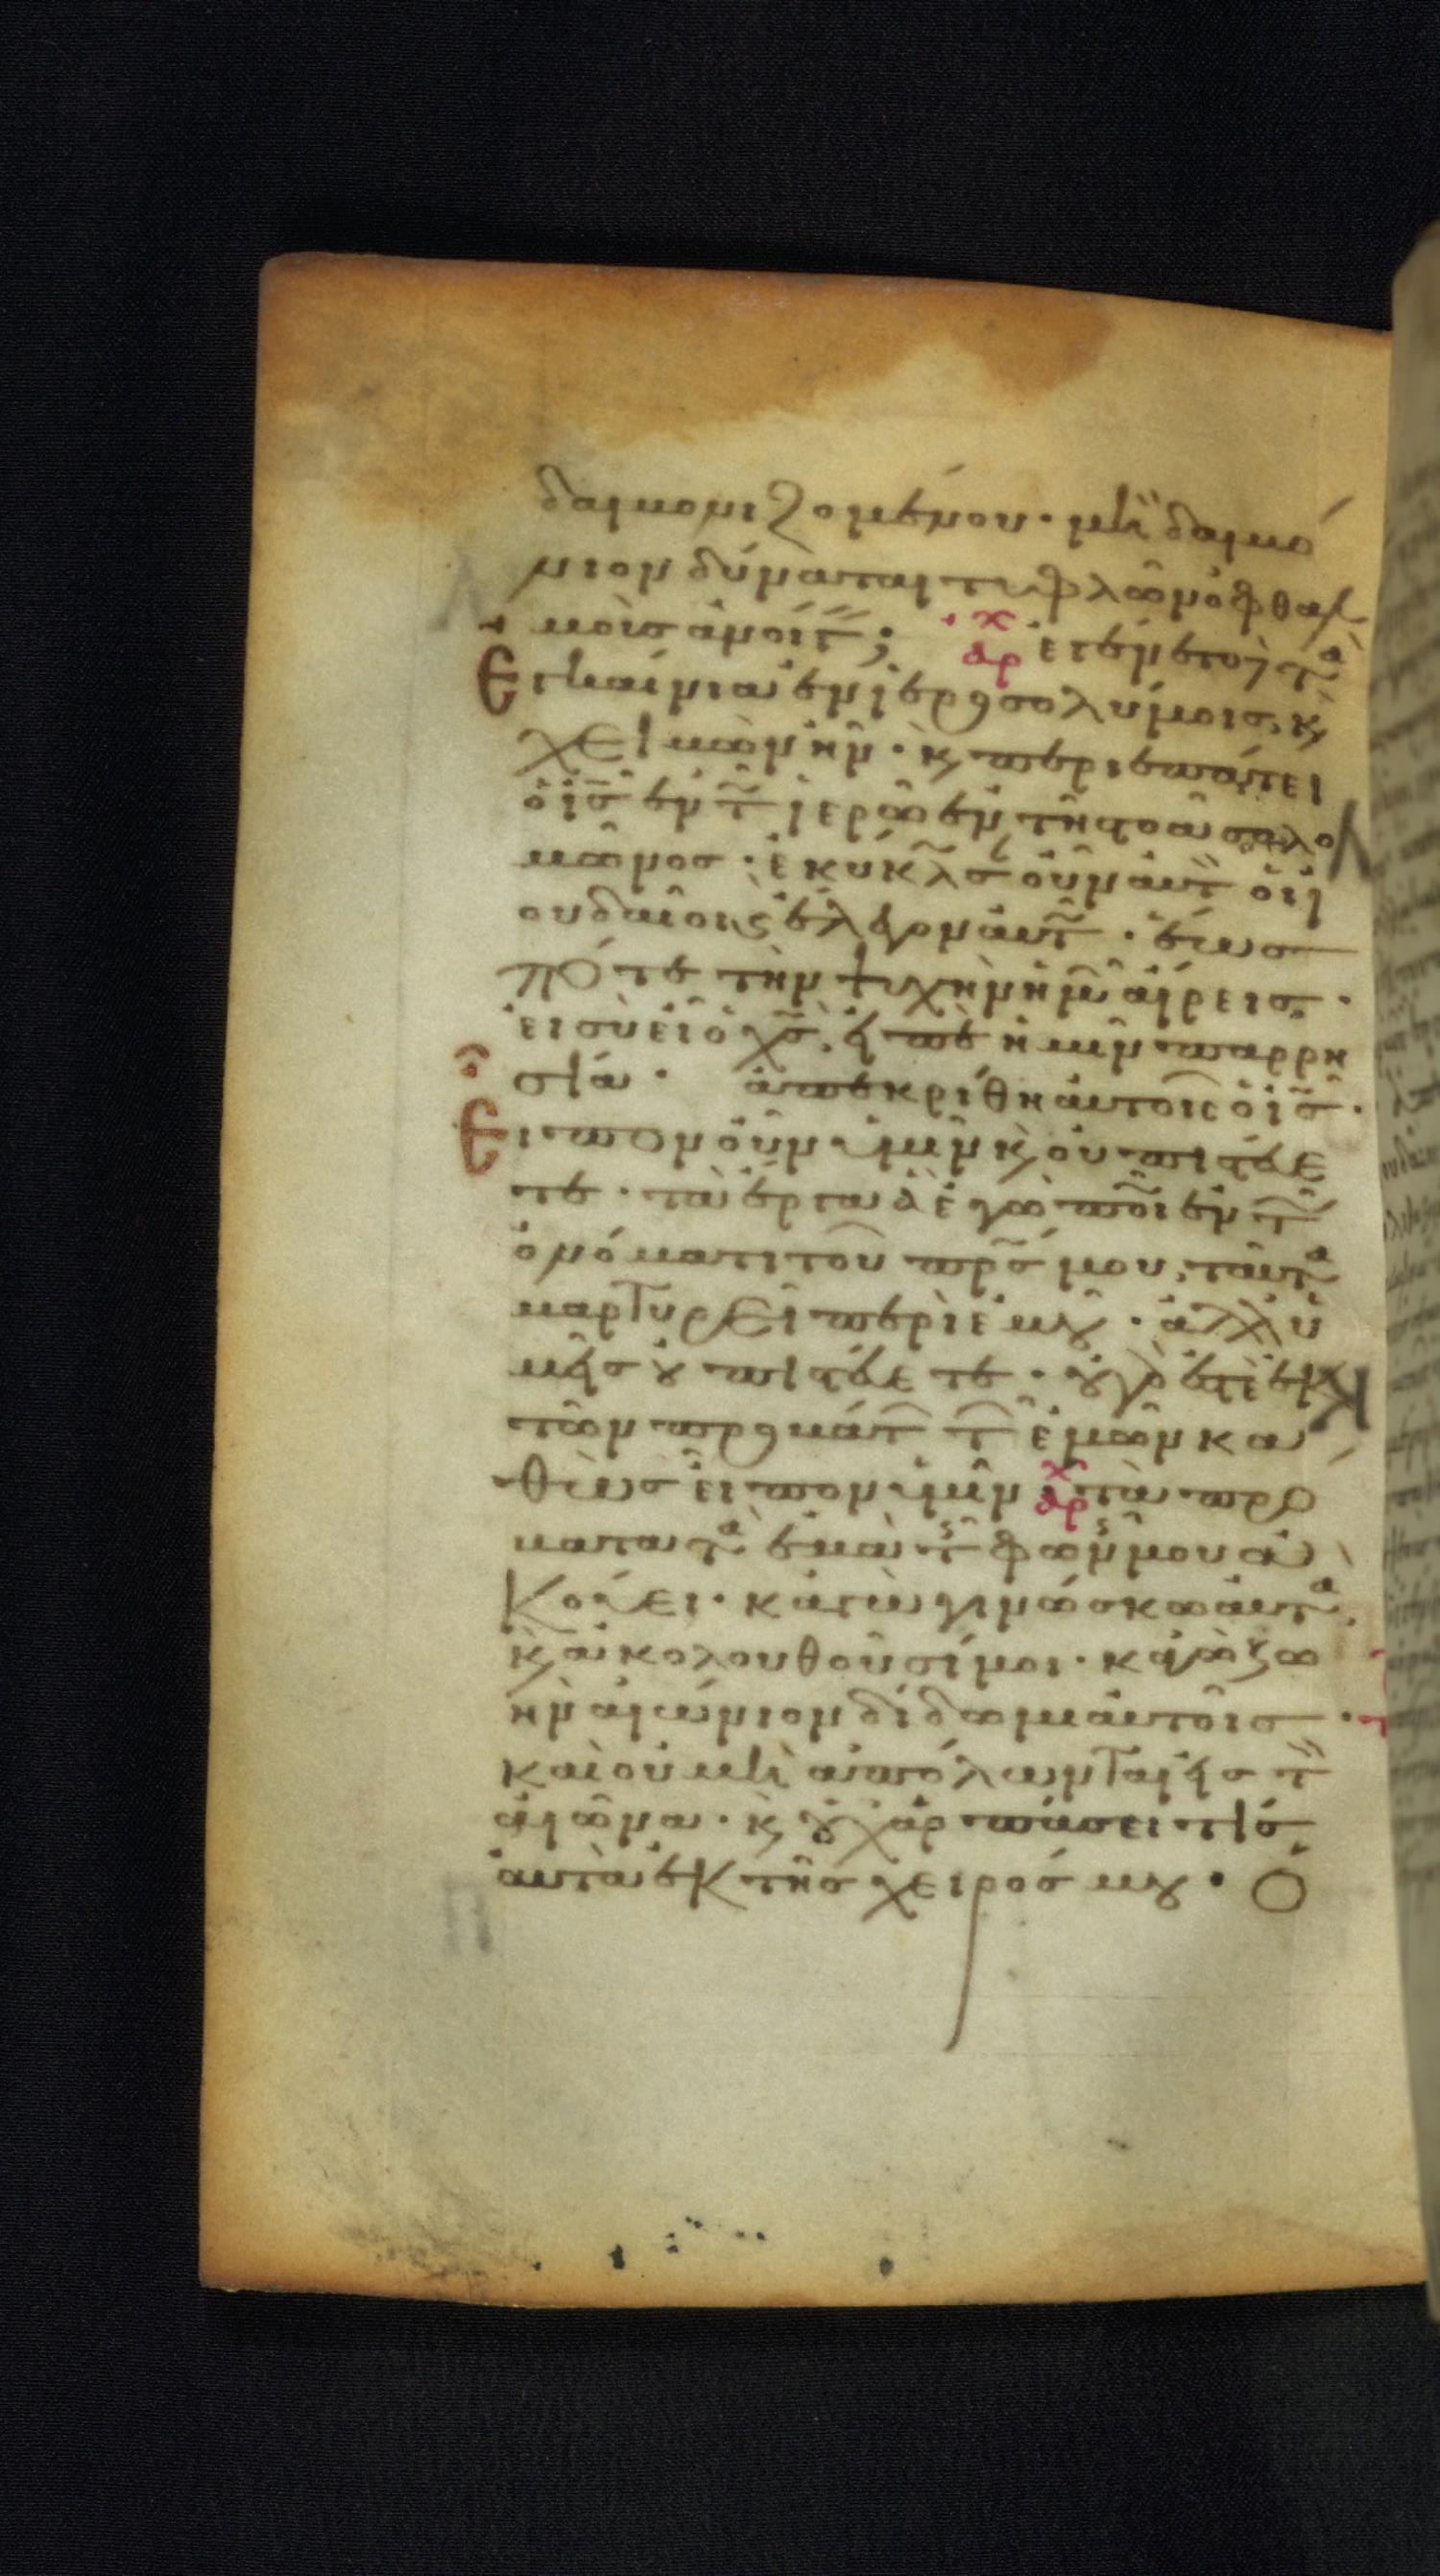 δαιμονιζομένου· μὴ δαιμό
νιον δύναται τυφλῶν ὀφθαλ
μοὺς ἀνοῖξ; ἀρχ ἐγένετο τὰ
Ἐγκαίνια ἐν ἱεροσολύμοις, κ̀
χειμὼν ἦν· κ̀ περιεπάτει
ὁ ἰς̄ ἐν τ̃ ἱερῶ ἐν τῆ στοᾶ σολο
μῶνος· ἐκύκλωσ οὖν αὐτ οἱ ἰ
ουδαῖοι κ̀ ἔλεγον αὐτ̃· ἕως
πότε τὴν ψυχὴν ἡμῶ αἴρεις·
εἰ σὺ εἶ ὁ χς̄, εἰπὲ ἡμῖν παρρη
σία· ἀπεκρίθη αὐτοῖς ὁ ἰς̄·
Εἶπον οὖν ὑμῖν κ̀ οὐ πιστεύε
τε· τὰ ἔργα ἃ ἐγὼ ποιῶ ἐν τῶ
ὀνόματι τοῦ πρς̄ μου, ταῦτα
μαρτυρεῖ περὶ ἐμοῦ· ἀλλ' ὑ
μεῖς οὐ πιστεύετε· οὐ γὰρ ἐστὲ ἐκ
τῶν προβάτ τ̃ ἐμῶν κα
θὼς εἶπον ὑμῖν ἀρχ τὰ πρό
βατα τὰ ἐμὰ τῆς φωνῆς μου ἀ
κούει· κἀγὼ γινώσκω αὐτά,
κ̀ ἀκολουθοῦσί μοι· κἀγὼ ζω
ὴν αἰώνιον δίδωμι αὐτοῖς·
καὶ οὐ μὴ ἀπόλωνται εἰς τ̀
αἰῶνα· κ̀ οὐχ ἁρπάσει τίς
αὐτὰ ἐκ τῆς χειρός μου· Ὁ